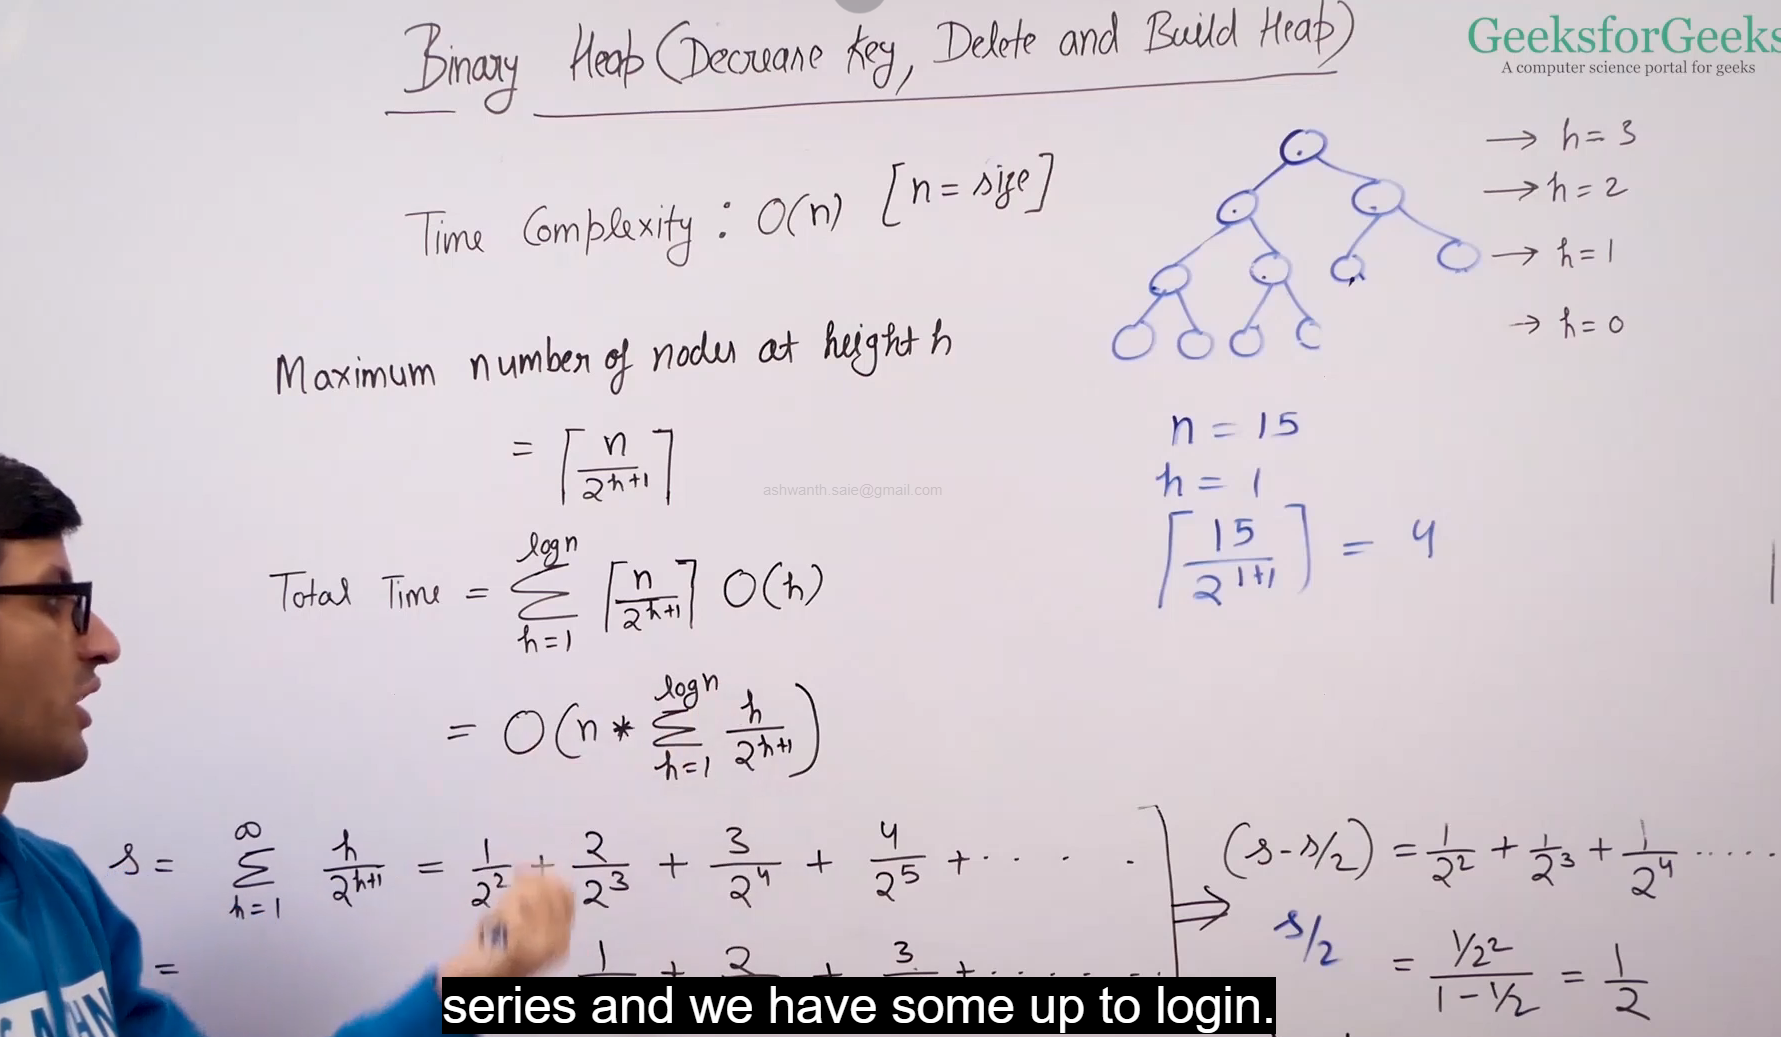 Binary Heap (Decrease Key, Delete and Build Heap)
GeeksforGeeks
A computer science portal for geeks
Time Complexity : O(n) [n = size]
→ h = 3
→ h = 2
→ h = 1
→ h = 0
Maximum number of nodes at height h
= ⌈n/2^(h+1)⌉
n = 15
h = 1
⌈15/2^(1+1)⌉ = 4
ashwanth.saie@gmail.com
Total Time = Σ_(h=1)^(log n) ⌈n/2^(h+1)⌉ O(h)
= O(n * Σ_(h=1)^(log n) h/2^(h+1))
s = Σ_(h=1)^∞ h/2^(h+1) = 1/2^2 + 2/2^3 + 3/2^4 + 4/2^5 + . . . .
= 1 + 2 + 3 + . . . . .
⇒ (s - s/2) = 1/2^2 + 1/2^3 + 1/2^4 .....
s/2 = (1/2^2)/(1 - 1/2) = 1/2
series and we have some up to login.